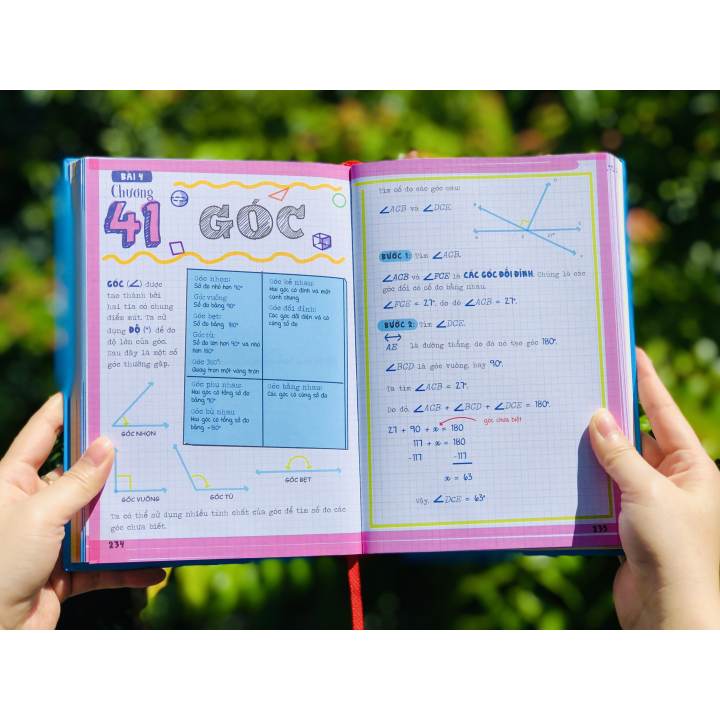 BÀI 4
Chương
41
GÓC
GÓC (∠) được
tạo thành bởi
hai tia có chung
điểm mút. Ta sử
dụng ĐỘ (°) để đo
độ lớn của góc.
Sau đây là một số
góc thường gặp.
Góc nhọn:
Số đo nhỏ hơn 90°
Góc vuông:
Số đo bằng 90°
Góc bẹt:
Số đo bằng 180°
Góc tù:
Số đo lớn hơn 90° và nhỏ
hơn 180°
Góc 360°:
Quay tròn một vòng tròn
Góc kề nhau:
Hai góc có đỉnh và một
cạnh chung
Góc đối đỉnh:
Các góc đối diện và có
cùng số đo
Góc phụ nhau:
Hai góc có tổng số đo
bằng 90°
Góc bù nhau:
Hai góc có tổng số đo
bằng
Góc bằng nhau:
Các góc có cùng số đo
GÓC NHỌN
GÓC VUÔNG
GÓC TÙ
GÓC BẸT
Ta có thể sử dụng nhiều tính chất của góc để tìm số đo các
góc chưa biết.
234
Tìm số đo các góc sau:
∠ACB và ∠DCE.
27°
BƯỚC 1: Tìm ∠ACB.
∠ACB và ∠FCE là CÁC GÓC ĐỐI ĐỈNH. Chúng là các
góc đối có số đo bằng nhau.
∠FCE = 27°, do đó ∠ACB = 27°.
BƯỚC 2: Tìm ∠DCE.
AE là đường thẳng, do đó nó tạo góc 180°.
∠BCD là góc vuông, hay 90°.
Ta tìm ∠ACB = 27°.
Do đó, ∠ACB + ∠BCD + ∠DCE = 180°.
góc chưa biết
27 + 90 + x = 180
117 + x = 180
-117 -117
x = 63
Vậy, ∠DCE = 63°
235